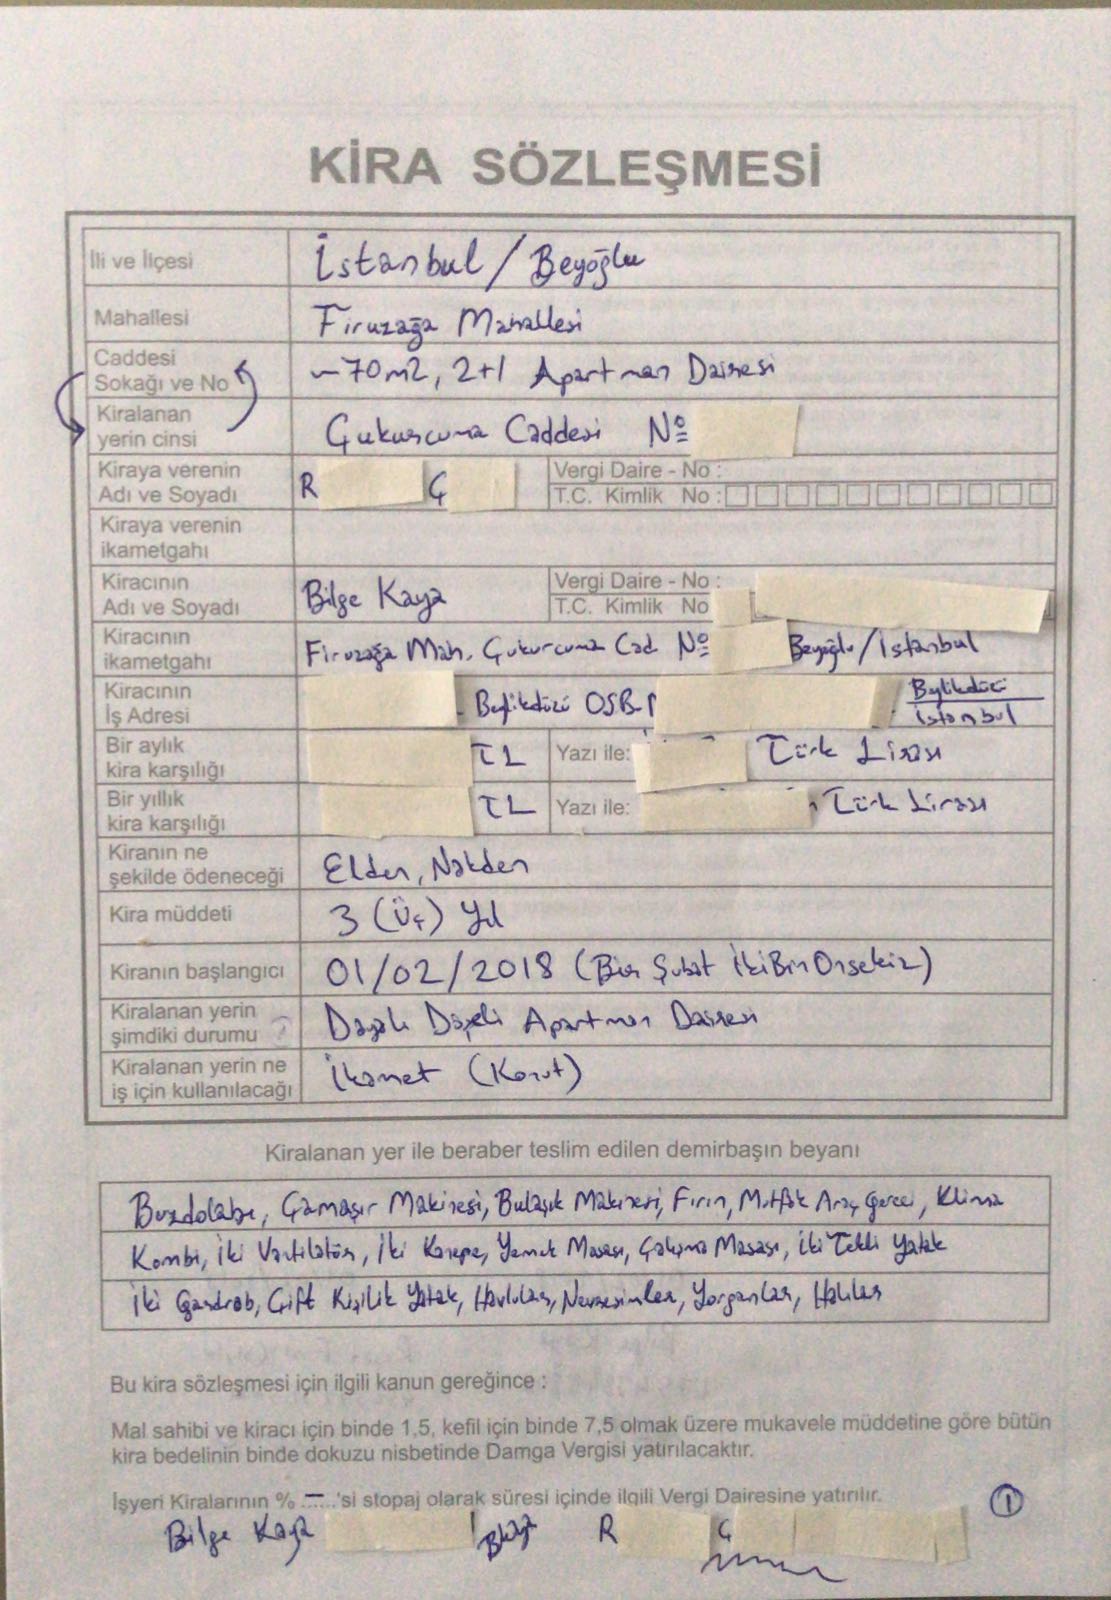 KİRA SÖZLEŞMESİ
İli ve İlçesi İstanbul / Beyoğlu
Mahallesi Firuzağa Mahallesi
Caddesi
Sokağı ve No ~70m2, 2+1 Apartman Dairesi
Kiralanan
yerin cinsi Çukurcuma Caddesi Nº
Kiraya verenin
Adı ve Soyadı R Ç Vergi Daire - No :
T.C. Kimlik No :
Kiraya verenin
ikametgahı
Kiracının
Adı ve Soyadı Bilge Kaya Vergi Daire - No :
T.C. Kimlik No
Kiracının
ikametgahı Firuzağa Mah. Çukurcuma Cad. Nº Beyoğlu/İstanbul
Kiracının
İş Adresi Beylikdüzü OSB Beylikdüzü
İstanbul
Bir aylık
kira karşılığı TL Yazı ile: Türk Lirası
Bir yıllık
kira karşılığı TL Yazı ile: Türk Lirası
Kiranın ne
şekilde ödeneceği Elden, Nakden
Kira müddeti 3 (Üç) Yıl
Kiranın başlangıcı 01/02/2018 (Bir Şubat İkiBinOnsekiz)
Kiralanan yerin
şimdiki durumu Dayalı Döşeli Apartman Dairesi
Kiralanan yerin ne
iş için kullanılacağı İkamet (Konut)
Kiralanan yer ile beraber teslim edilen demirbaşın beyanı
Buzdolabı, Çamaşır Makinesi, Bulaşık Makinesi, Fırın, Mutfak Araç Gereci, Klima
Kombi, İki Vantilatör, İki Kanepe, Yemek Masası, Çalışma Masası, İki Tekli Yatak
İki Gardrob, Çift Kişilik Yatak, Havlular, Nevresimler, Yorganlar, Halılar
Bu kira sözleşmesi için ilgili kanun gereğince :
Mal sahibi ve kiracı için binde 1,5, kefil için binde 7,5 olmak üzere mukavele müddetine göre bütün
kira bedelinin binde dokuzu nisbetinde Damga Vergisi yatırılacaktır.
İşyeri Kiralarının % –......'si stopaj olarak süresi içinde ilgili Vergi Dairesine yatırılır. 1
Bilge Kaya BKaya R Ç